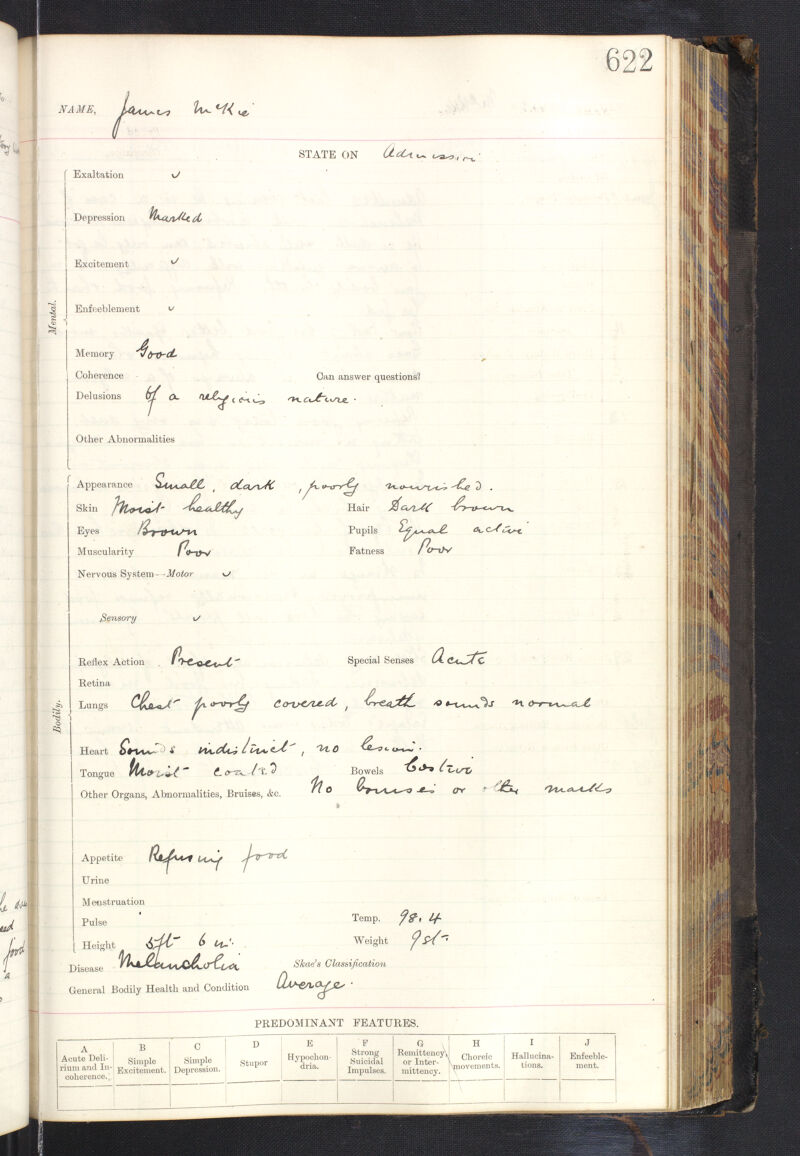 622
NAME, James McKie
STATE ON Admission
Mental.
Exaltation ✓
Depression Marked
Excitement ✓
Enfeeblement ✓
Memory Good
Coherence Can answer questions?
Delusions Of a religious nature.
Other Abnormalities
Bodily.
Appearance Small, dark, poorly nourished.
Skin Moist healthy Hair Dark brown
Eyes Brown Pupils Equal active
Muscularity Poor Fatness Poor
Nervous System—Motor ✓
Sensory ✓
Reflex Action Present Special Senses Acute
Retina
Lungs Chest poorly covered, breath sounds normal
Heart Sounds indistinct, no lesion.
Tongue Moist coated Bowels Costive
Other Organs, Abnormalities, Bruises, &c. No bruises or other marks
Appetite Refusing food
Urine
Menstruation
Pulse Temp. 98.4
Height 5ft 6 in. Weight 9st.
Disease Melancholia Skae's Classification
General Bodily Health and Condition Average.
PREDOMINANT FEATURES.
A B C D E F G H I J
Acute Delirium and Incoherence. Simple Excitement. Simple Depression. Stupor Hypochondria. Strong Suicidal Impulses. Remittency, or Intermittency. Choreic movements. Hallucinations. Enfeeblement.
food
a